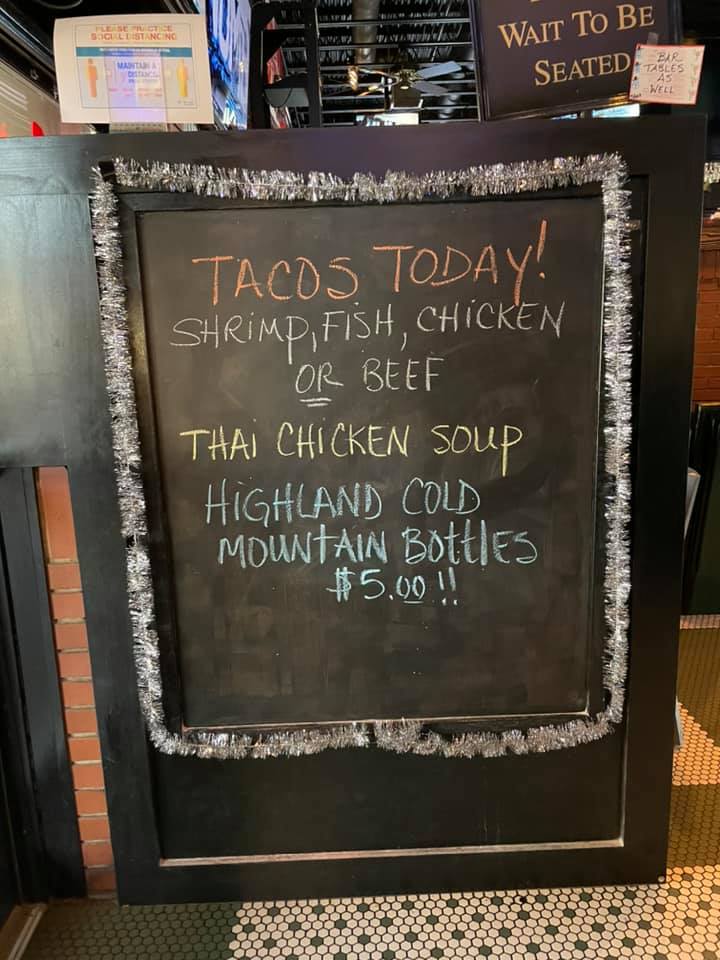 PLEASE PRACTICE
SOCIAL DISTANCING
MAINTAIN A
DISTANCE
WAIT TO BE
SEATED
BAR
TABLES
AS
WELL
TACOS TODAY!
SHRIMP, FISH, CHICKEN
OR BEEF
THAI CHICKEN SOUP
HIGHLAND COLD
MOUNTAIN BOTTLES
$5.00!!